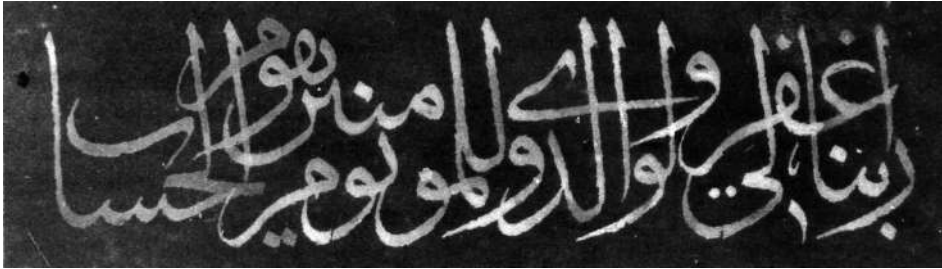 ربنا اغفر لي ولوالدي وللمومنين يوم يقوم الحساب